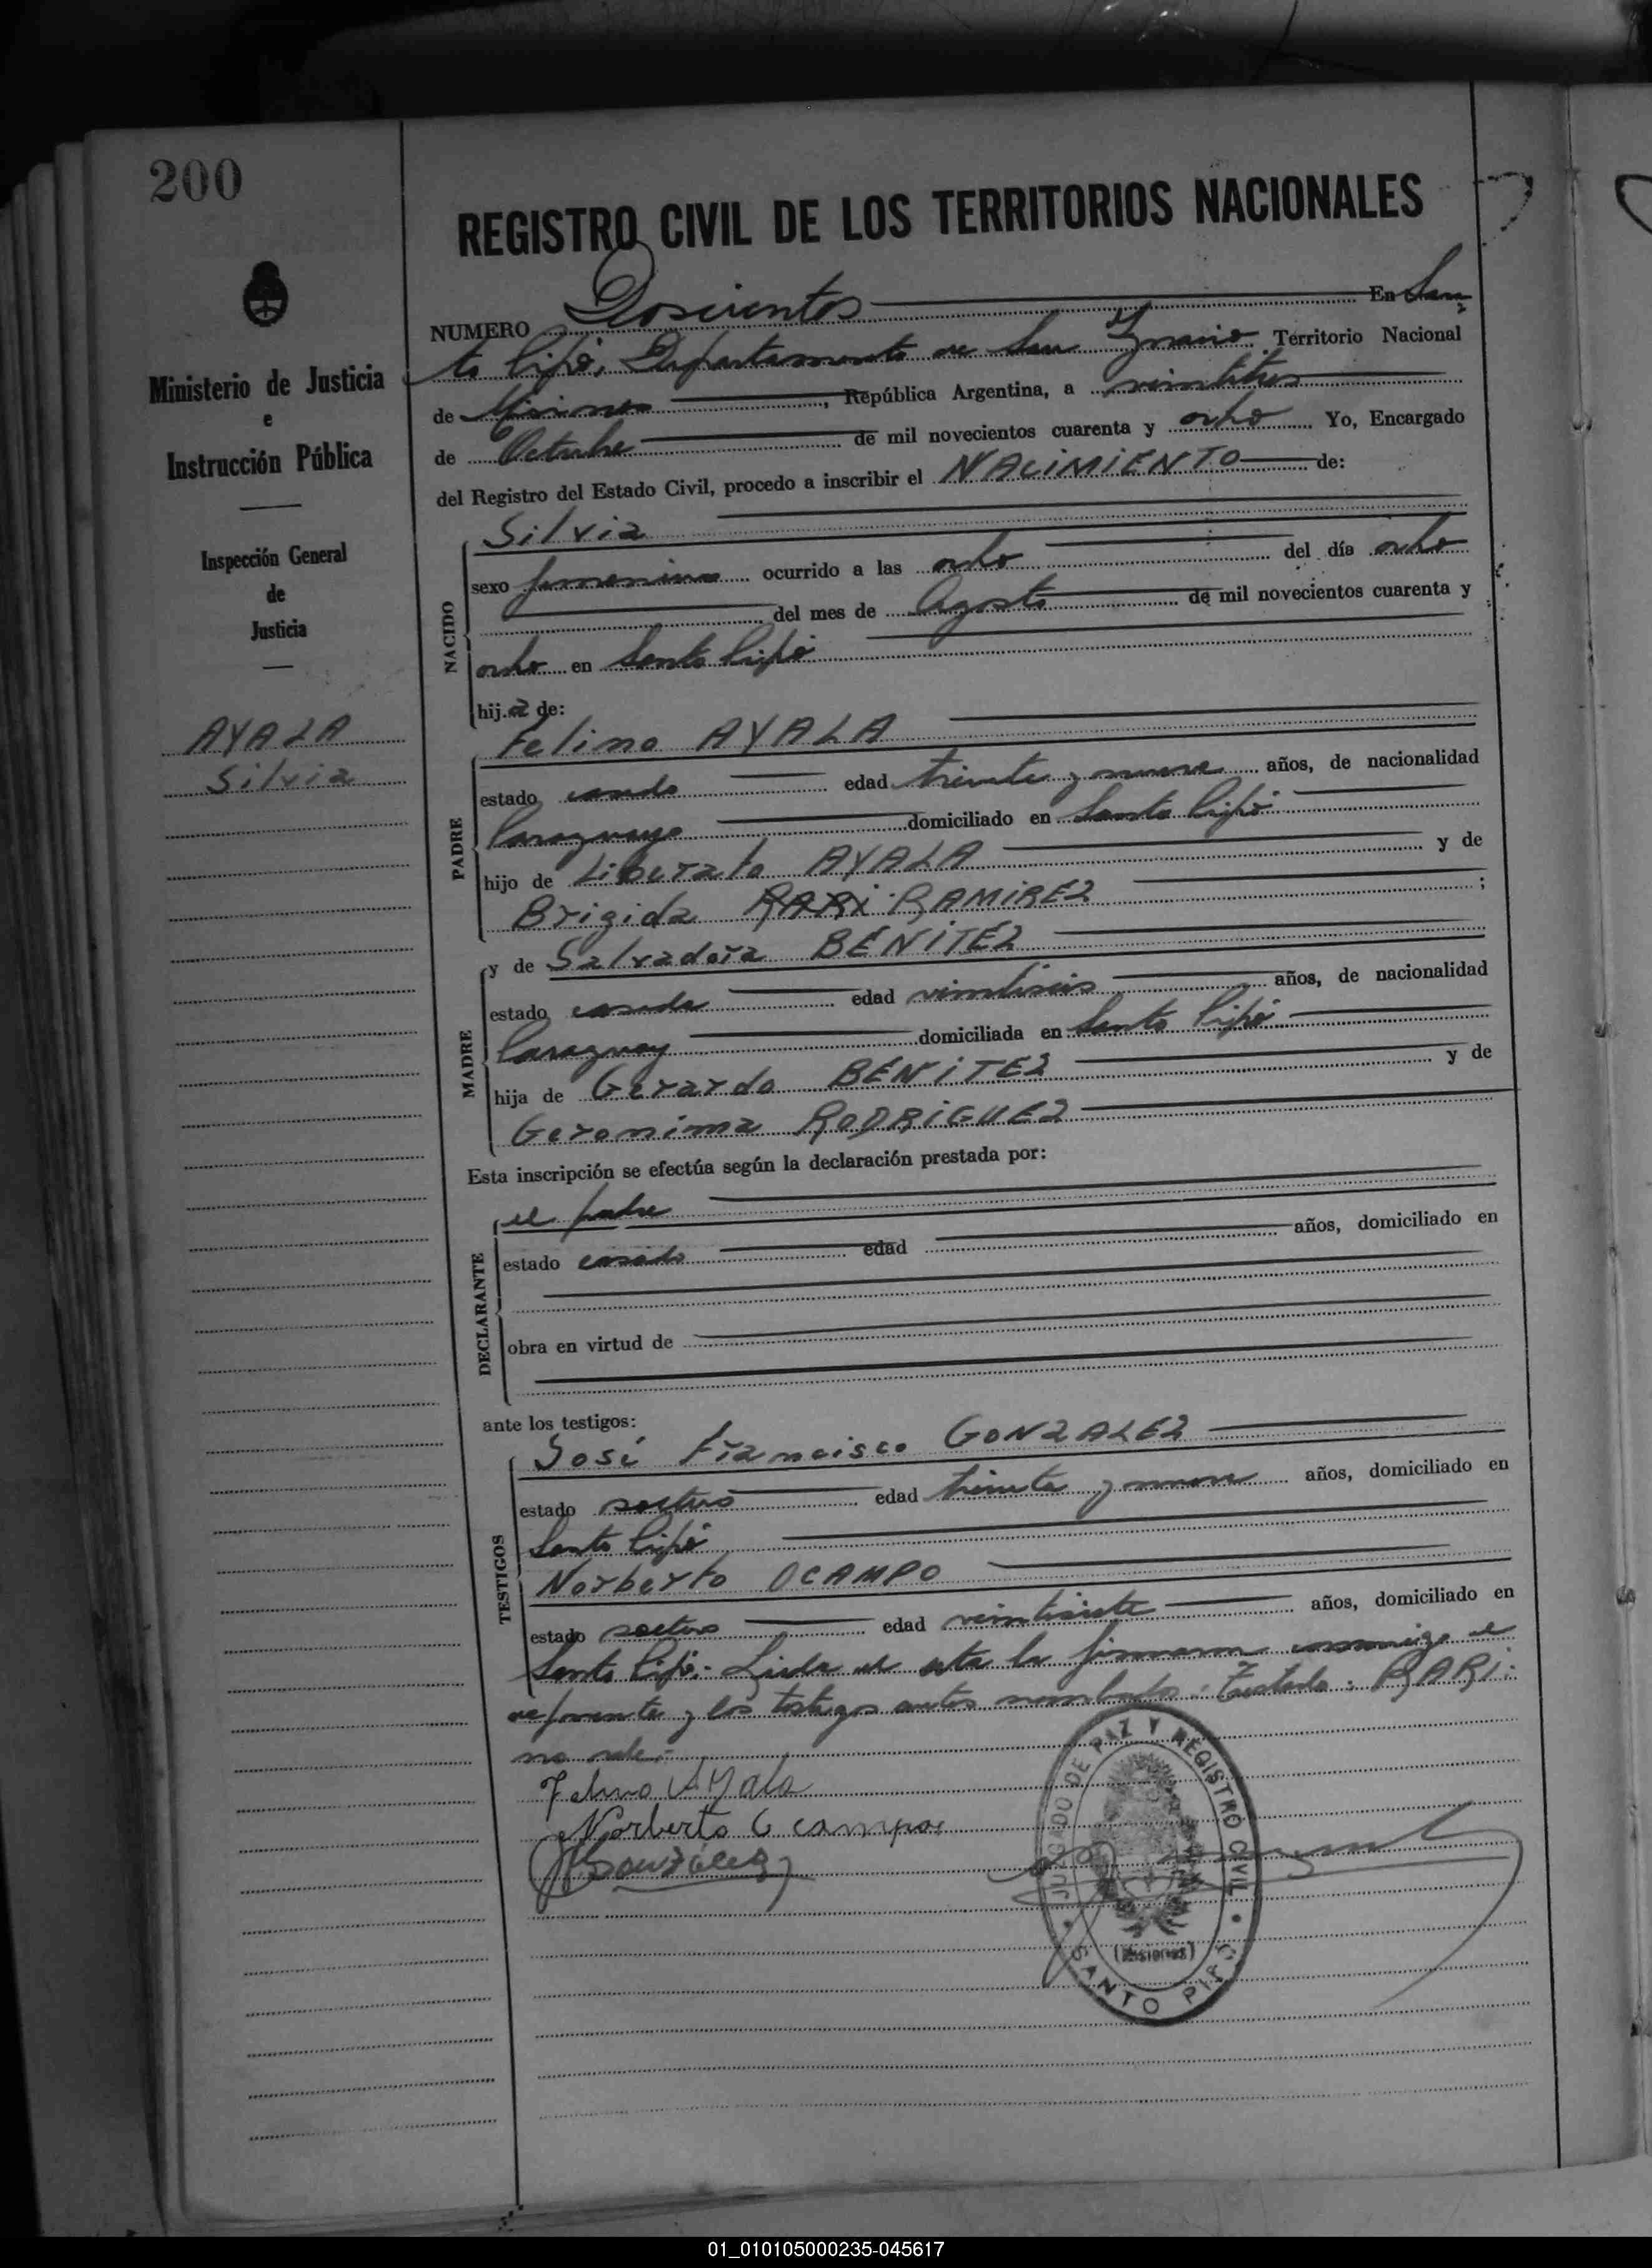 200
REGISTRO CIVIL DE LOS TERRITORIOS NACIONALES
Ministerio de Justicia
e
Instrucción Pública
Inspección General
de
Justicia
AYALA
Silvia
NUMERO Doscientos En San
to Pipó, Departamento de San Ignacio Territorio Nacional
de Misiones, República Argentina, a veintitres
de Octubre de mil novecientos cuarenta y ocho Yo, Encargado
del Registro del Estado Civil, procedo a inscribir el NACIMIENTO de:
NACIDO
Silvia
sexo femenino ocurrido a las ocho del día ocho
del mes de Agosto de mil novecientos cuarenta y
ocho en Santo Pipó
hij.a de:
PADRE
Felino AYALA
estado casado edad treinta y nueve años, de nacionalidad
Paraguayo domiciliado en Santo Pipó
hijo de Liberato AYALA y de
Brigida RARI RAMIREZ ;
MADRE
y de Salvadora BENITEZ
estado casada edad veintiseis años, de nacionalidad
Paraguay domiciliada en Santo Pipó
hija de Gerardo BENITEZ y de
Geronima RODRIGUEZ
Esta inscripción se efectúa según la declaración prestada por:
DECLARANTE
el padre
estado casado edad años, domiciliado en
obra en virtud de
ante los testigos:
TESTIGOS
José Francisco GONZALEZ
estado soltero edad treinta y nueve años, domiciliado en
Santo Pipó
Norberto OCAMPO
estado soltero edad veintisiete años, domiciliado en
Santo Pipó.- Leida el acta la firmaron conmigo el
exponente y los testigos antes nombrados.- Testado: RARI:
no vale.-
Felino Ayala
Norberto Ocampos
JFGonzález
JUZGADO DE PAZ Y REGISTRO CIVIL
(Misiones)
SANTO PIPÓ
01_010105000235-045617